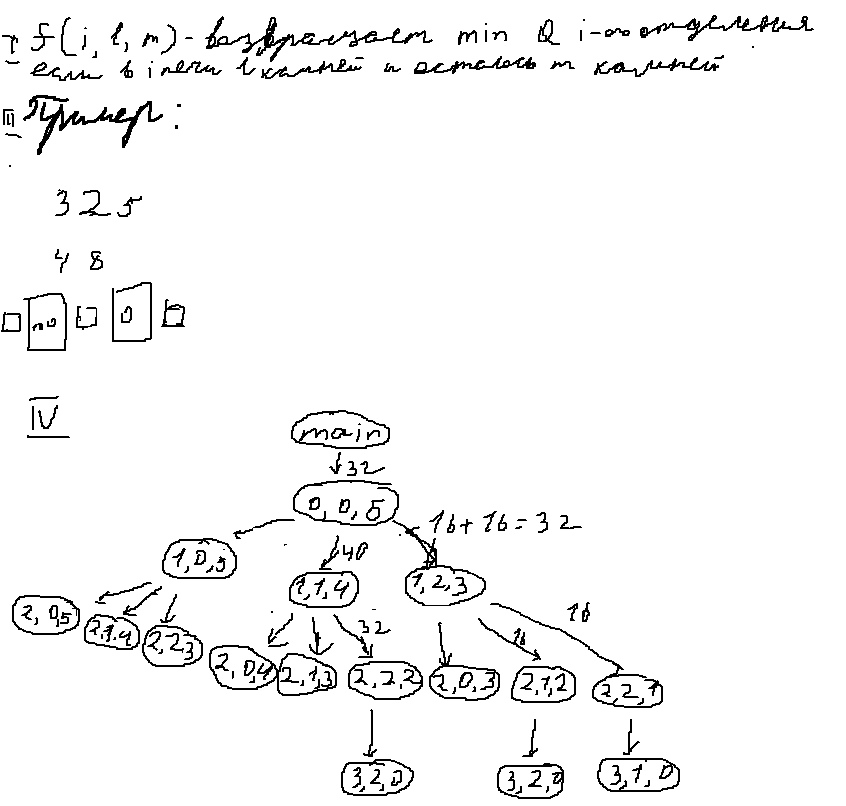 I f(i, l, m) - возвращает min Q i-го отделения
если в i печи l камней и осталось m камней
III Пример:
3 2 5
4 8
0
IV
main
32
0, 0, 5
16+16=32
1,0,5
40
1,1,4
1,2,3
2, 0,5
2,1,4
2,2,3
32
16
16
2,0,4
2,1,3
2,2,2
2,0,3
2,1,2
2,2,1
3,2,0
3,2,0
3,1,0